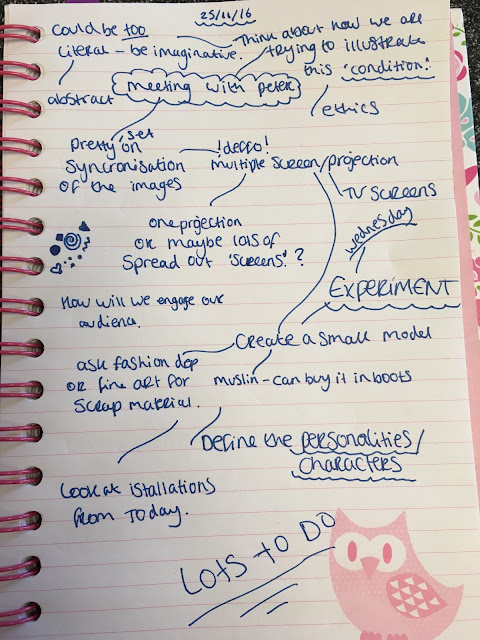 25/11/16
Could be too
literal - be imaginative.
Think about how we are
trying to illustrate
this 'condition'.
abstract
meeting with peter
ethics
pretty 'set
on'
syncronisation
of the images
!decco!
multiple screen/projection
TV SCREENS
one projection
or maybe lots of
spread out 'screens'?
wednesday
EXPERIMENT
How will we engage our
audience.
Create a small model
ask fashion dep
or fine art for
scrap material.
muslin - can buy it in boots
Define the personalities/
characters
Look at istallations
from TODAY.
LOTS TO DO